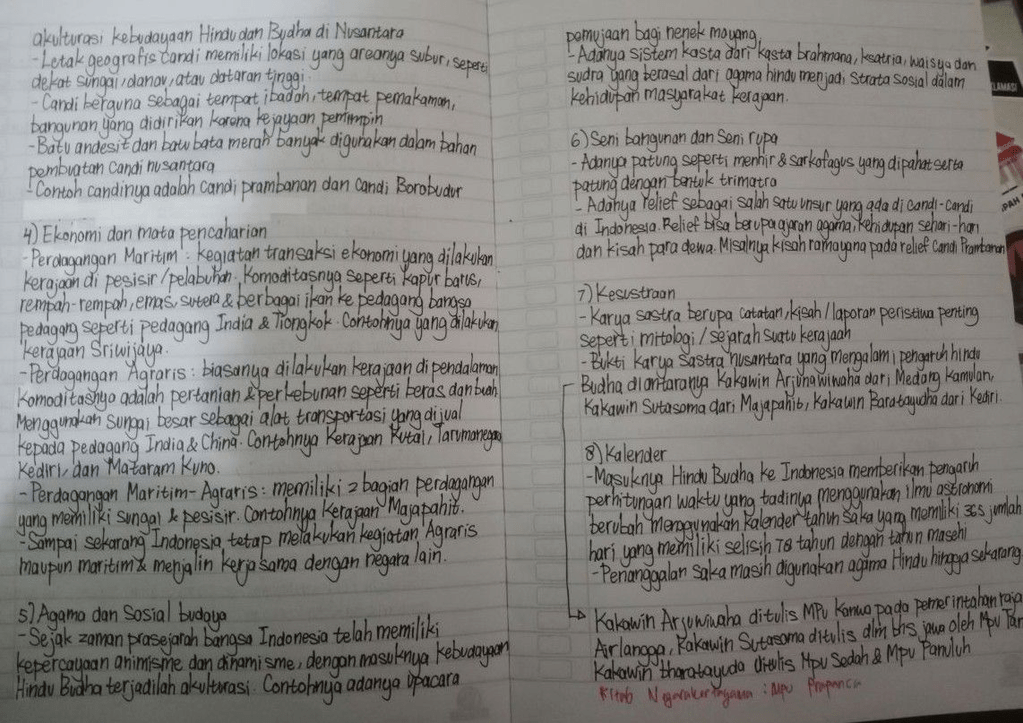 akulturasi kebudayaan Hindu dan Budha di Nusantara
- Letak geografis candi memiliki lokasi yang areanya subur, seperti
dekat sungai, danau, atau dataran tinggi.
- Candi berguna sebagai tempat ibadah, tempat pemakaman,
bangunan yang didirikan karena kejayaan pemimpin
- Batu andesit dan batu bata merah banyak digunakan dalam bahan
pembuatan candi nusantara
- Contoh candinya adalah candi prambanan dan candi Borobudur
4) Ekonomi dan mata pencaharian
- Perdagangan Maritim : kegiatan transaksi ekonomi yang dilakukan
kerajaan di pesisir/pelabuhan. Komoditasnya seperti kapur barus,
rempah-rempah, emas, sutera & berbagai ikan ke pedagang bangsa
pedagang seperti pedagang India & Tiongkok. Contohnya yang dilakukan
kerajaan Sriwijaya.
- Perdagangan Agraris : biasanya dilakukan kerajaan di pendalaman
Komoditasnya adalah pertanian & perkebunan seperti beras dan buah
Menggunakan sungai besar sebagai alat transportasi yang dijual
kepada pedagang India & China. Contohnya Kerajaan Kutai, Tarumanegara
Kediri, dan Mataram Kuno.
- Perdagangan Maritim-Agraris : memiliki 2 bagian perdagangan
yang memiliki sungai & pesisir. Contohnya Kerajaan Majapahit.
- Sampai sekarang Indonesia tetap melakukan kegiatan Agraris
maupun maritim & menjalin kerja sama dengan negara lain.
5) Agama dan Sosial budaya
- Sejak zaman prasejarah bangsa Indonesia telah memiliki
kepercayaan animisme dan dinamisme, dengan masuknya kebudayaan
Hindu Budha terjadilah akulturasi. Contohnya adanya upacara
pemujaan bagi nenek moyang.
- Adanya sistem kasta dari kasta brahmana, ksatria, waisya dan
sudra yang berasal dari agama hindu menjadi strata sosial dalam
kehidupan masyarakat kerajaan.
6) Seni bangunan dan Seni rupa
- Adanya patung seperti menhir & sarkofagus yang dipahat serta
patung dengan bentuk trimatra
- Adanya relief sebagai salah satu unsur yang ada di candi-candi
di Indonesia. Relief bisa berupa ajaran agama, kehidupan sehari-hari
dan kisah para dewa. Misalnya kisah ramayana pada relief Candi Prambanan
7) Kesustraan
- Karya sastra berupa catatan, kisah/laporan peristiwa penting
seperti mitologi/sejarah suatu kerajaan
- Bukti karya sastra nusantara yang mengalami pengaruh hindu
Budha diantaranya Kakawin Arjunawiwaha dari Medang Kamulan,
Kakawin Sutasoma dari Majapahit, Kakawin Baratayudha dari Kediri.
8) Kalender
- Masuknya Hindu Budha ke Indonesia memberikan pengaruh
perhitungan waktu yang tadinya menggunakan ilmu astronomi
berubah menggunakan kalender tahun saka yang memiliki 365 jumlah
hari yang memiliki selisih 78 tahun dengan tahun masehi
- Penanggalan saka masih digunakan agama Hindu hingga sekarang
Kakawin Arjuwiwaha ditulis MPu Kanwa pada pemerintahan raja
Airlangga, Kakawin Sutasoma ditulis dlm bhs jawa oleh Mpu Tan
Kakawin bharatayuda ditulis Mpu Sedah & MPu Panuluh
Kitab Negarakertagama : Mpu Prapanca